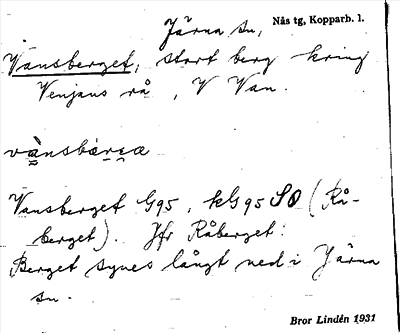 Järna sn, Nås tg, Kopparb. l.
Vansberget, stort berg kring
Venjans rå, V Van.
vànsbærɛa
Vansberget G95, kG95 SO (Rå-
berget). Jfr Råberget:
Berget synes långt ned i Järna
sn.
Bror Lindén 1931